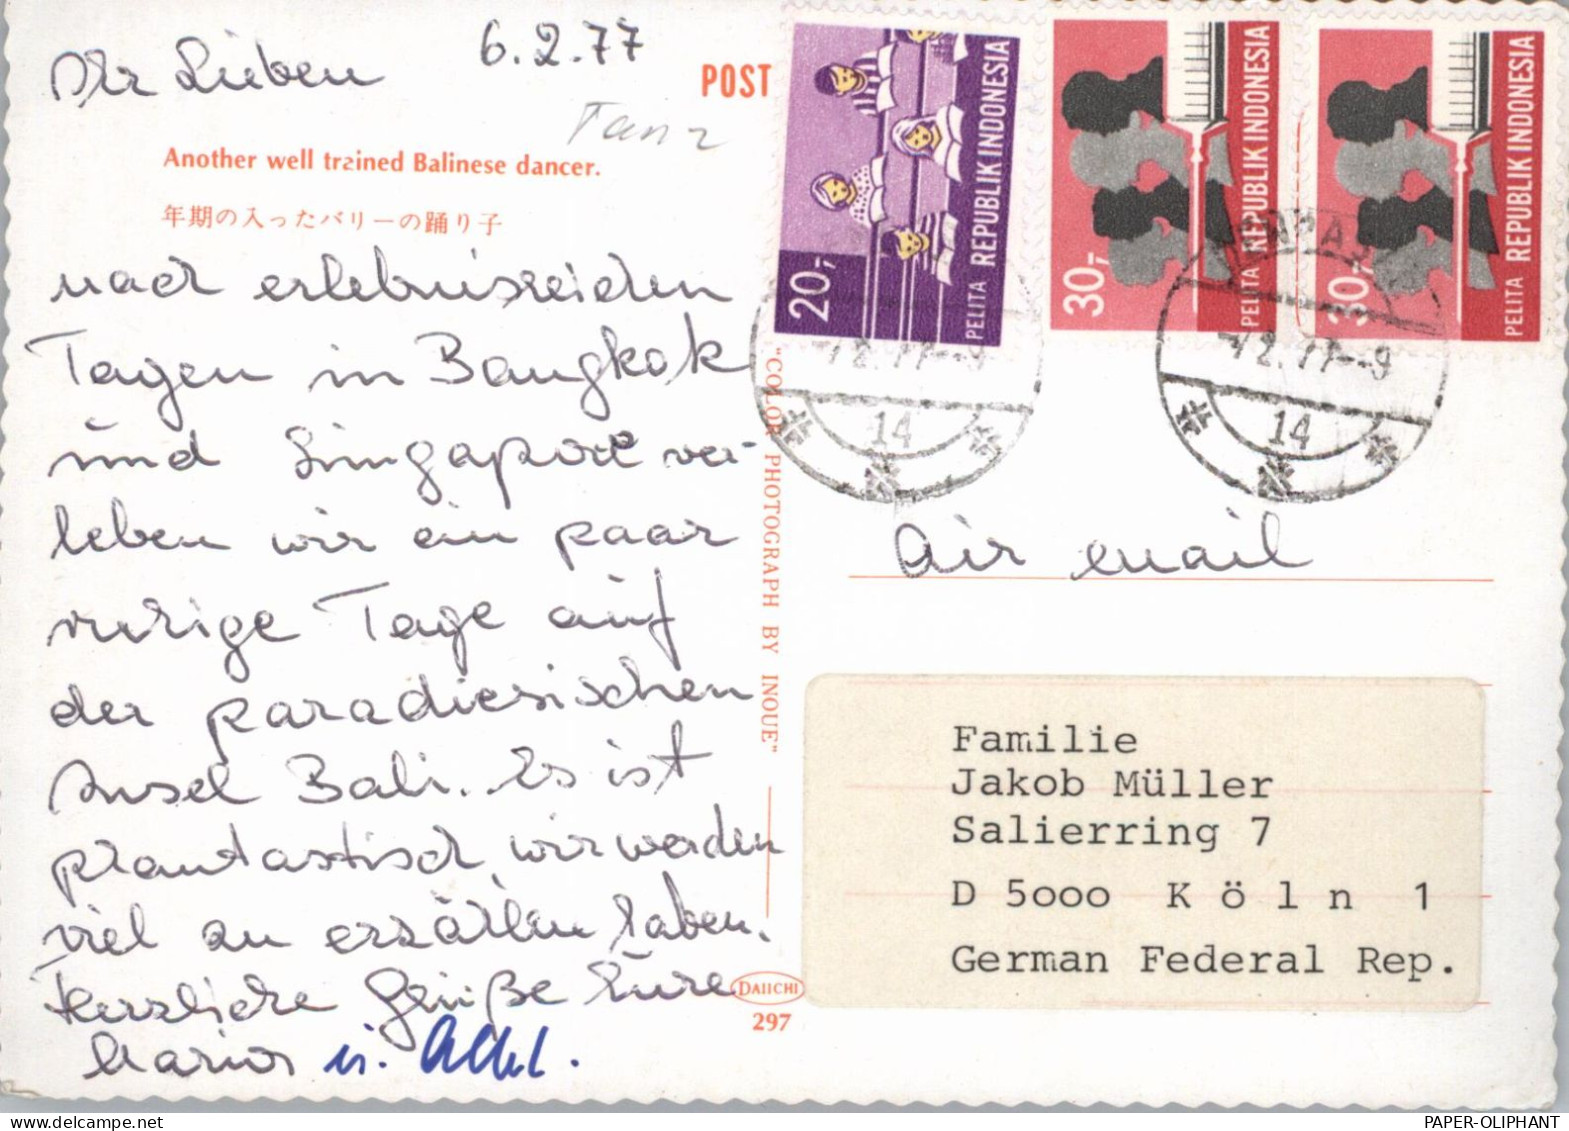 6.2.77
Ihr Lieben
POST
Tanz
Another well trained Balinese dancer.
年期の入ったバリーの踊り子
nach erlebnisreichen
Tagen in Bangkok
und Singapore ver-
leben wir ein paar
ruhige Tage auf
der paradiesischen
Insel Bali. Es ist
phantastisch, wir werden
viel zu erzählen haben.
Herzliche Grüße Eure
u.
"COLOR PHOTOGRAPH BY INOUE"
DAIICHI
297
20,-
PELITA REPUBLIK INDONESIA
30,-
PELITA REPUBLIK INDONESIA
30,-
PELITA REPUBLIK INDONESIA
-7.2.77--9
14
-7.2.77--9
14
Air mail
Familie
Jakob Müller
Salierring 7
D 5ooo K ö l n 1
German Federal Rep.
PAPER-OLIPHANT